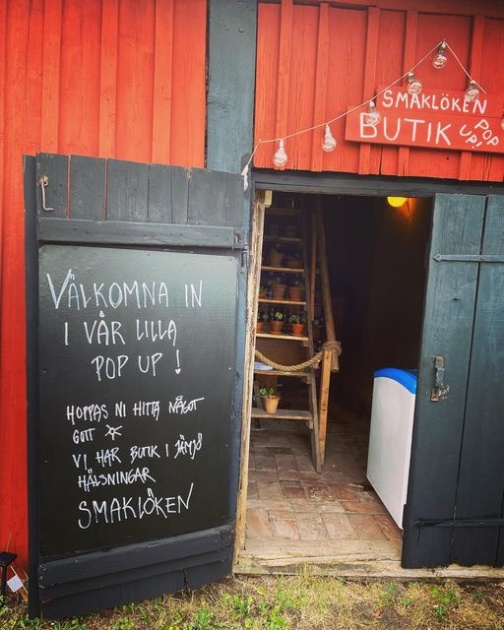 SMAKLÖKEN
BUTIK POP UP!
VÄLKOMNA IN
I VÅR LILLA
POP UP !
HOPPAS NI HITTA NÅGOT
GOTT
VI HAR BUTIK I JÄMJÖ
HÄLSNINGAR
SMAKLÖKEN